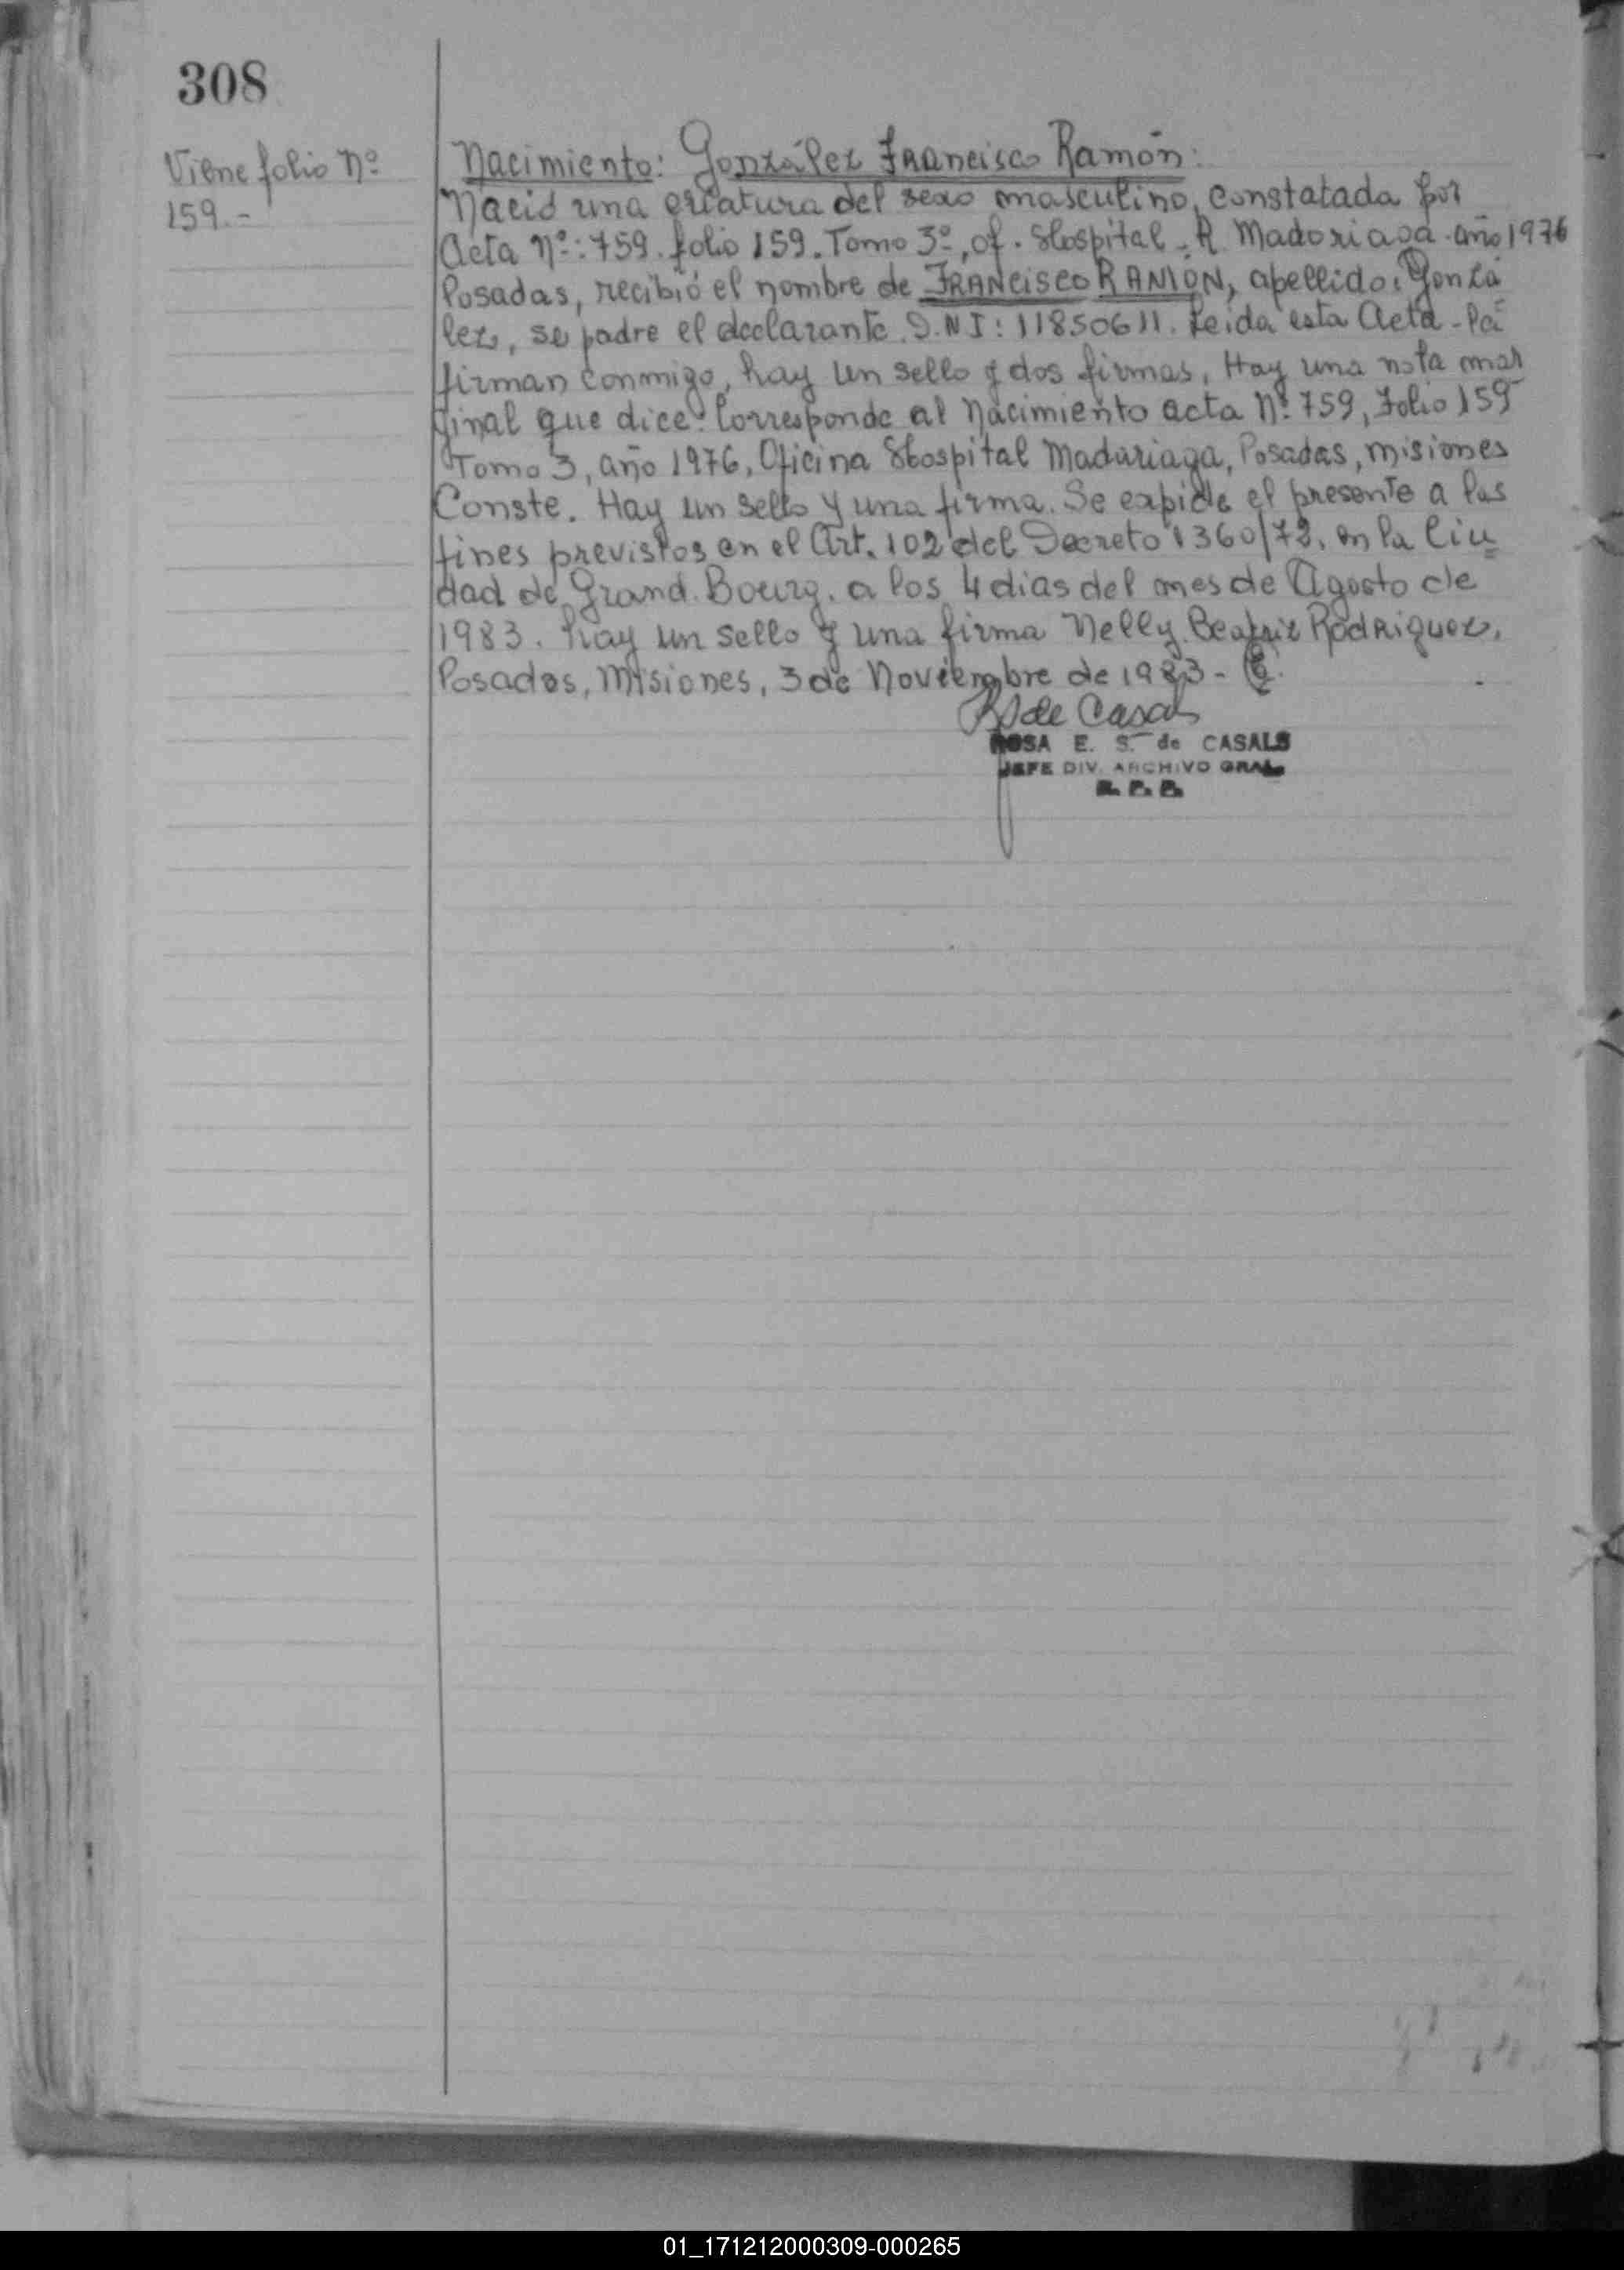 308
Viene folio Nº
159.-
Nacimiento: González Francisco Ramón:
Nació una criatura del sexo masculino, constatada por
Acta Nº: 759. folio 159. Tomo 3º, of. Hospital. R. Madoriaga. año 1976
Posadas, recibió el nombre de FRANCISCO RAMON, apellido: Gonzá
lez, se padre el declarante. D.N.I: 11850611. Leida esta Acta - la
firman conmigo, hay un sello y dos firmas, Hay una nota mar
ginal que dice: Corresponde al Nacimiento acta Nº 759, Folio 159
Tomo 3, año 1976, Oficina Hospital Madariaga, Posadas, misiones
Conste. Hay un sello y una firma. Se expide el presente a los
fines previstos en el Art. 102 del Decreto 1360/72, en la Ciu=
dad de Grand. Bourg. a los 4 dias del mes de Agosto de
1983. hay un sello y una firma Nelly Beatriz Rodriguez.
Posadas, Misiones, 3 de Noviembre de 1983 -
de Casals
ROSA E. S. de CASALS
JEFE DIV. ARCHIVO GRAL
01_171212000309-000265